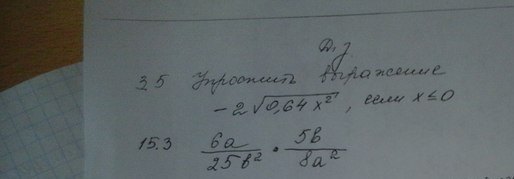 Д.з.
35 Упростить выражение
-2√0,64x², если x≤0
15.3 6a/25b² · 5b/8a²